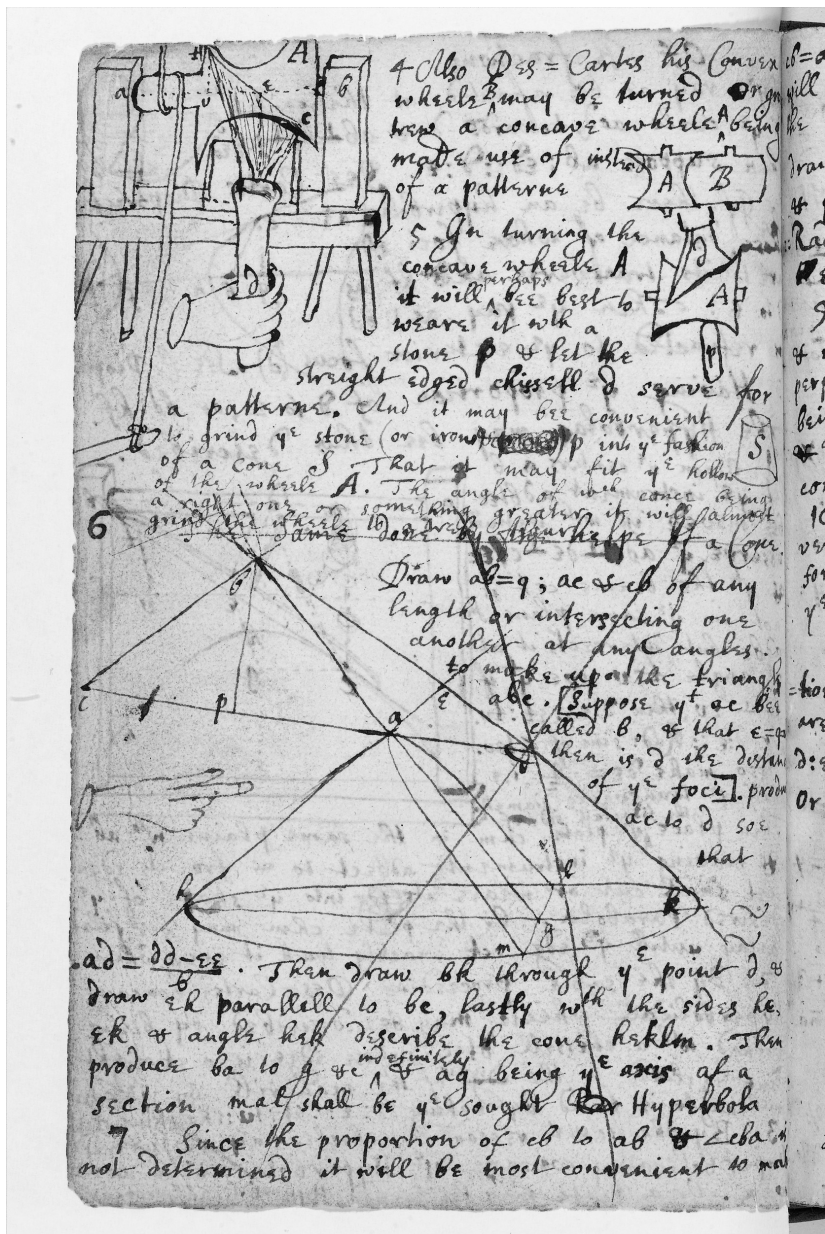 4 Also Des=Cartes his Conven
wheele B may be turned or grin
trew a concave wheele A being
made use of instead
of a patterne
A B
5 In turning the
concave wheele A
it will perhaps bee best to
weare it wth a
stone p & let the
streight edged chissell d serve for
a patterne. And it may bee convenient
to grind ye stone (or iron) p into ye fashion
of a cone S. That it may fit ye hollow
of the wheele A. The angle of wch cone being
a right one or something greater it will almost
grind the wheele to a true figure
6 The same done by the helpe of a Cone.
Draw ab=q; ac & cb of any
length or intersecting one
another at any angles.
to make up the triangle
abc. [Suppose yt ac bee
called b, & that e=q
then is d the distan
of ye foci]. produ
ac to d soe
that
ad = dd–ee / b . Then draw bk through ye point d, &
draw ek parallell to be, lastly wth the sides he,
ek & angle hek describe the cone heklm. Then
produce ba to g &c indefinitely & ag being ye axis of a
section mal shall be ye sought Hyperbola
7 Since the proportion of cb to ab & <cba is
not determined it will be most convenient to mak